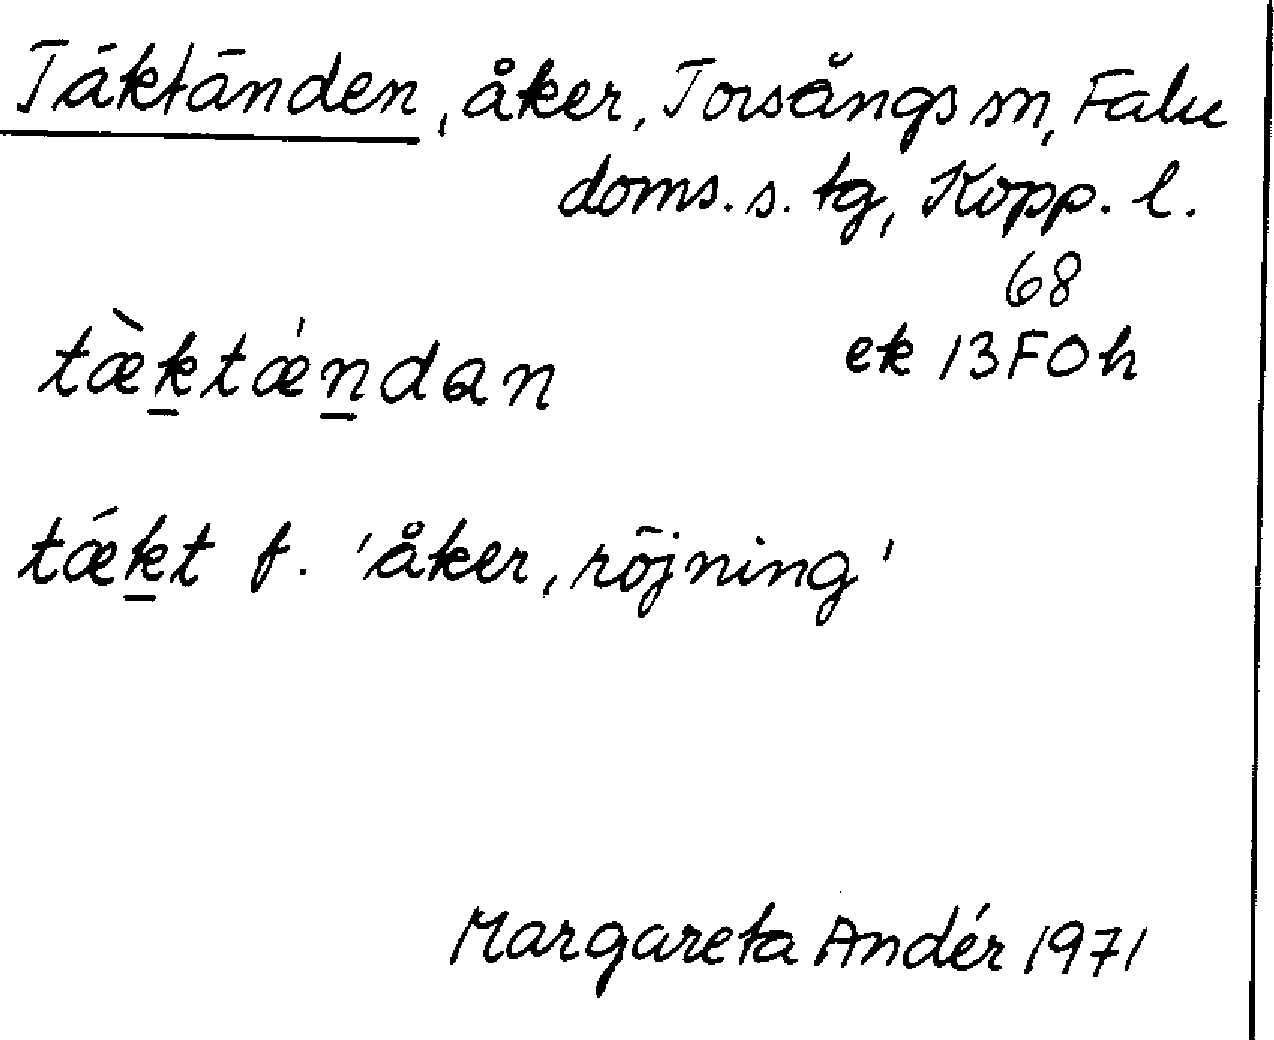 Täktänden, åker, Torsångs sn, Falu
doms. s. tg, Kopp. l.
68
tæ̀ḵtǽṉdan ek 13FOh
tǽḵt f. 'åker, röjning'
Margareta Andér 1971